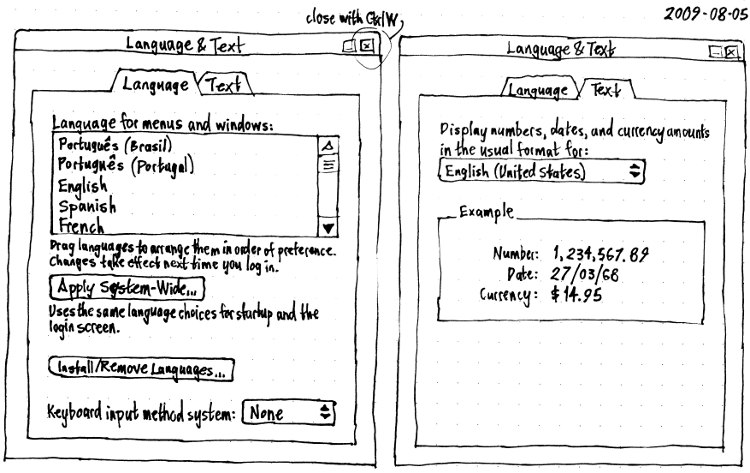 close with Ctrl W
2009-08-05
Language & Text
Language
Text
Language for menus and windows:
Português (Brasil)
Português (Portugal)
English
Spanish
French
Drag languages to arrange them in order of preference.
Changes take effect next time you log in.
Apply System-Wide...
Uses the same language choices for startup and the
login screen.
Install/Remove Languages...
Keyboard input method system: None
Language & Text
Language
Text
Display numbers, dates, and currency amounts
in the usual format for:
English (United States)
Example
Number: 1,234,567.89
Date: 27/03/68
Currency: $14.95